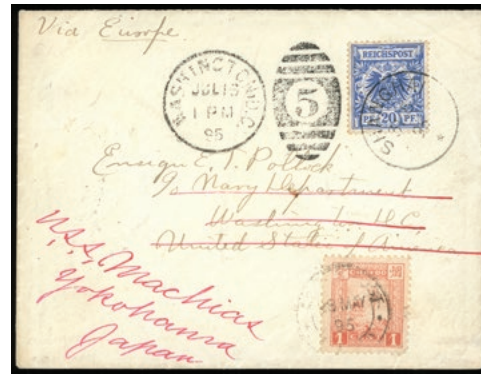 Via Europe.
WASHINGTON, D.C.
JUL 16
1 PM
95
5
REICHSPOST
20 PF
SHANGHAI
Ensign E. T. Pollock
c/o Navy Department
Washington D.C.
United States of America
U.S.S. Machias
Yokohama
Japan
MAY
95
1 1